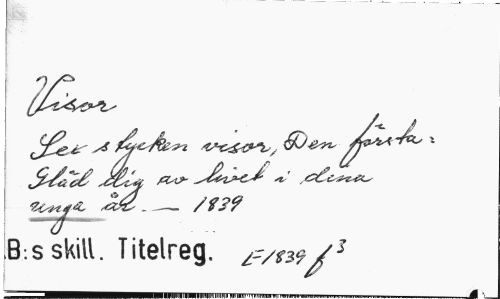 Visor
Sex stycken visor, Den första:
Gläd dig av livet i dina
unga år. — 1839
B:s skill. Titelreg. E1839 f³